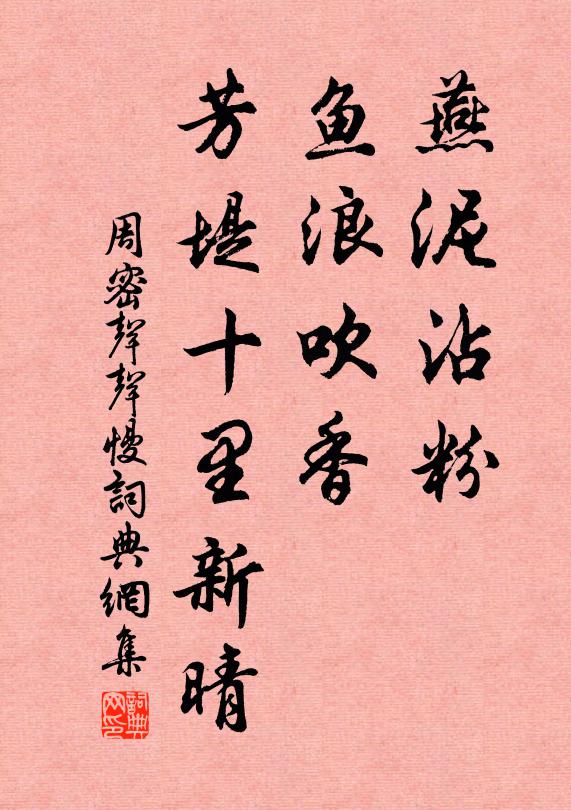 燕泥沾粉
鱼浪吹香
芳堤十里新晴
周密聲聲慢詞典網集
詞典网印